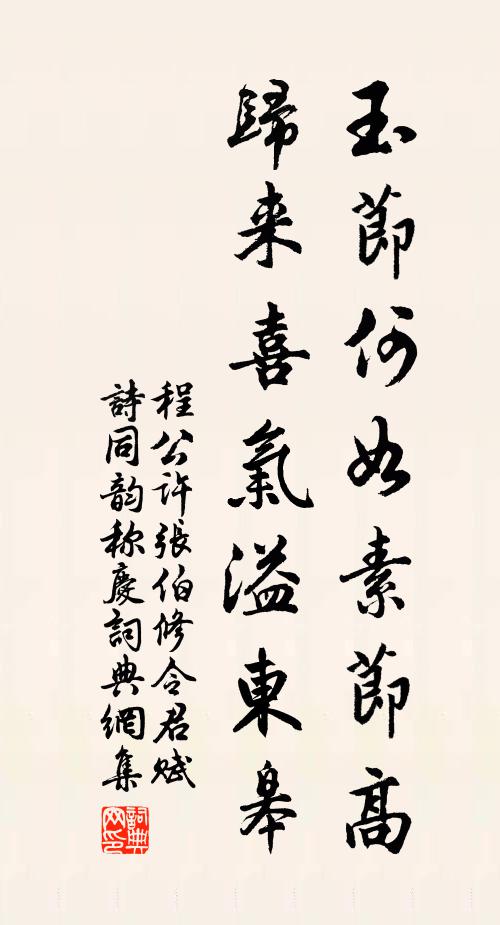 玉節何如素節高
歸来喜氣溢東皋
程公許張伯修令君賦
詩同韵称慶詞典網集
詞典网印